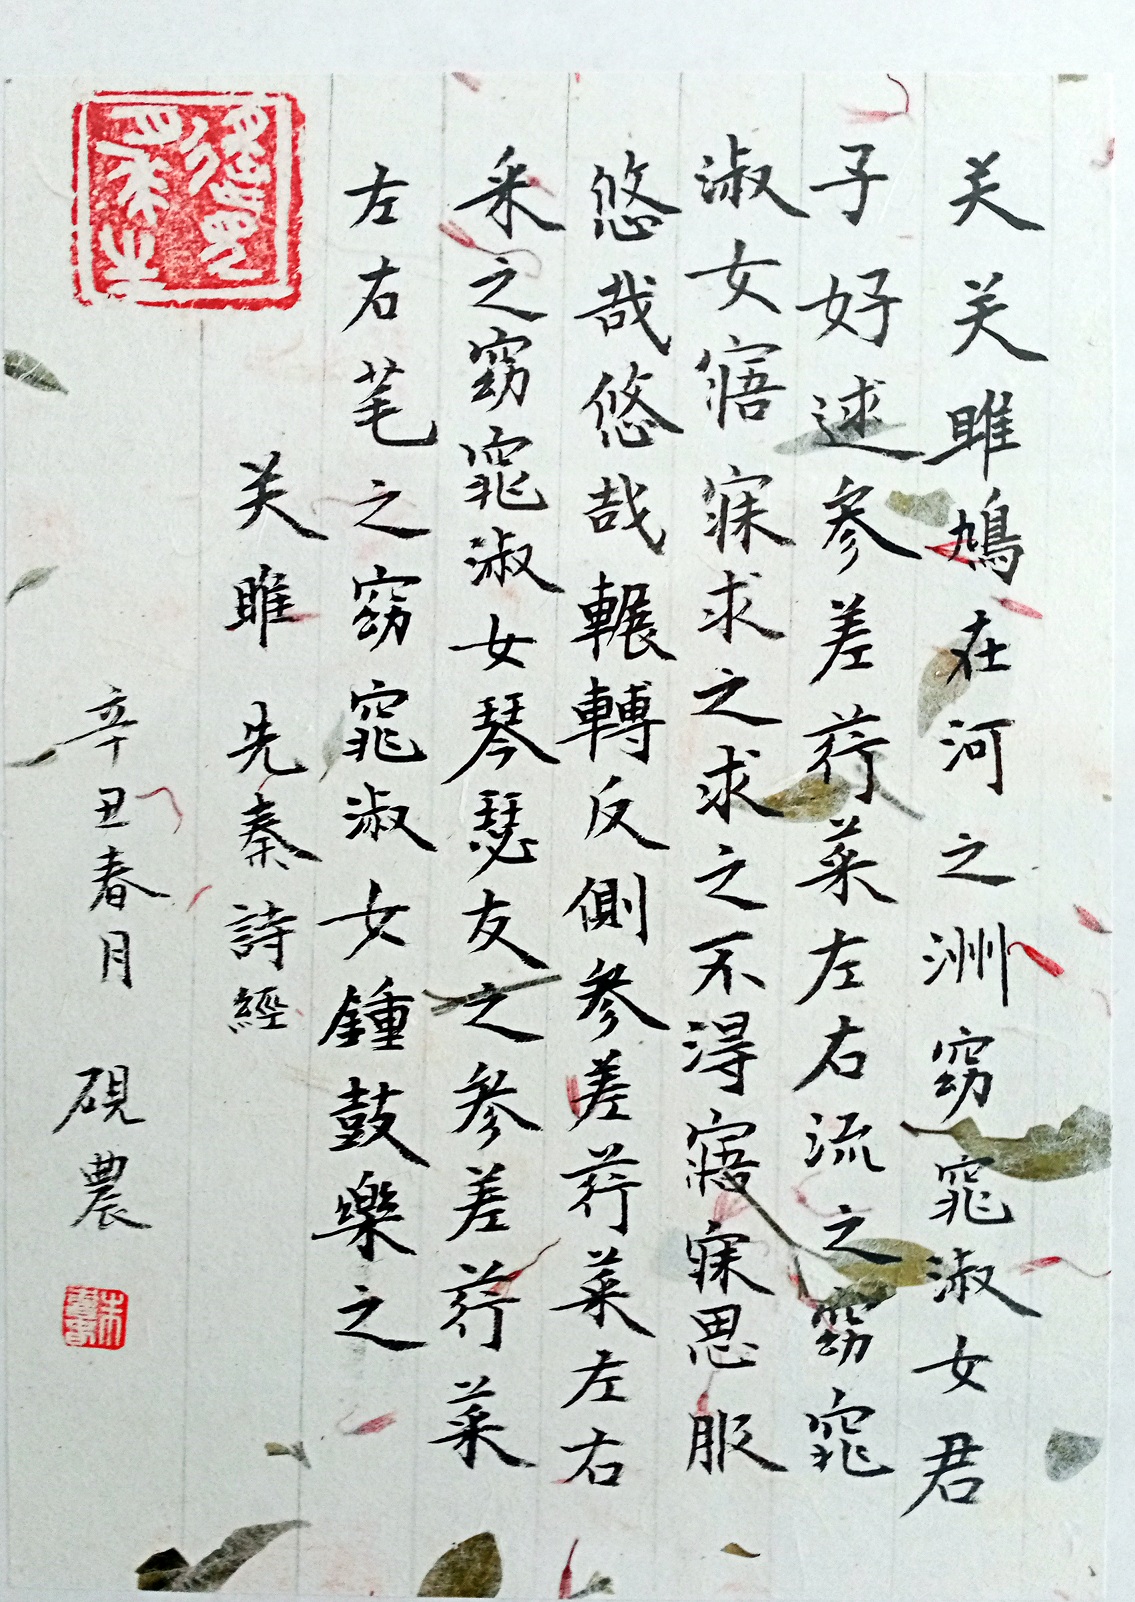 关关雎鳩在河之洲窈窕淑女君
子好逑參差荇菜左右流之窈窕
淑女寤寐求之求之不得寤寐思服
悠哉悠哉輾轉反側參差荇菜左右
采之窈窕淑女琴瑟友之參差荇菜
左右芼之窈窕淑女鍾鼓樂之
关雎 先秦詩經
辛丑春月 硯農